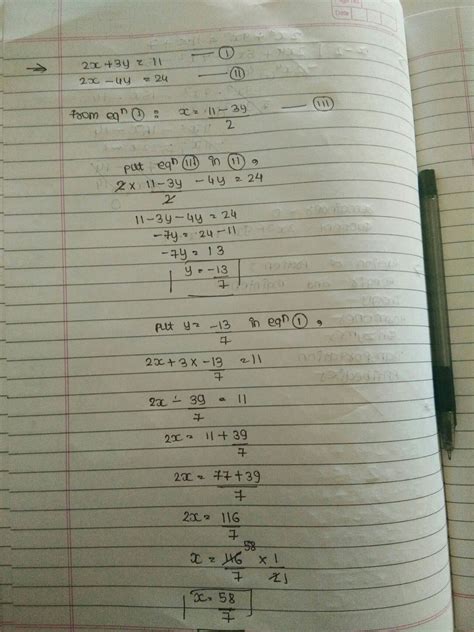 → 2x+3y = 11 —— Ⓘ
2x-4y = 24 —— Ⓘ̲Ⓘ
from eqⁿ Ⓘ : x = 11-3y —— (III)
2
put eqⁿ (III) in (II) ,
2 x 11-3y -4y = 24
2
11-3y-4y = 24
-7y = 24-11
-7y = 13
y = -13
7
put y = -13 in eqⁿ Ⓘ ,
7
2x+3 x -13 = 11
7
2x - 39 = 11
7
2x = 11+39
7
2x = 77+39
7
2x = 116
7
x = 116 58 x 1
7 21
x = 58
7